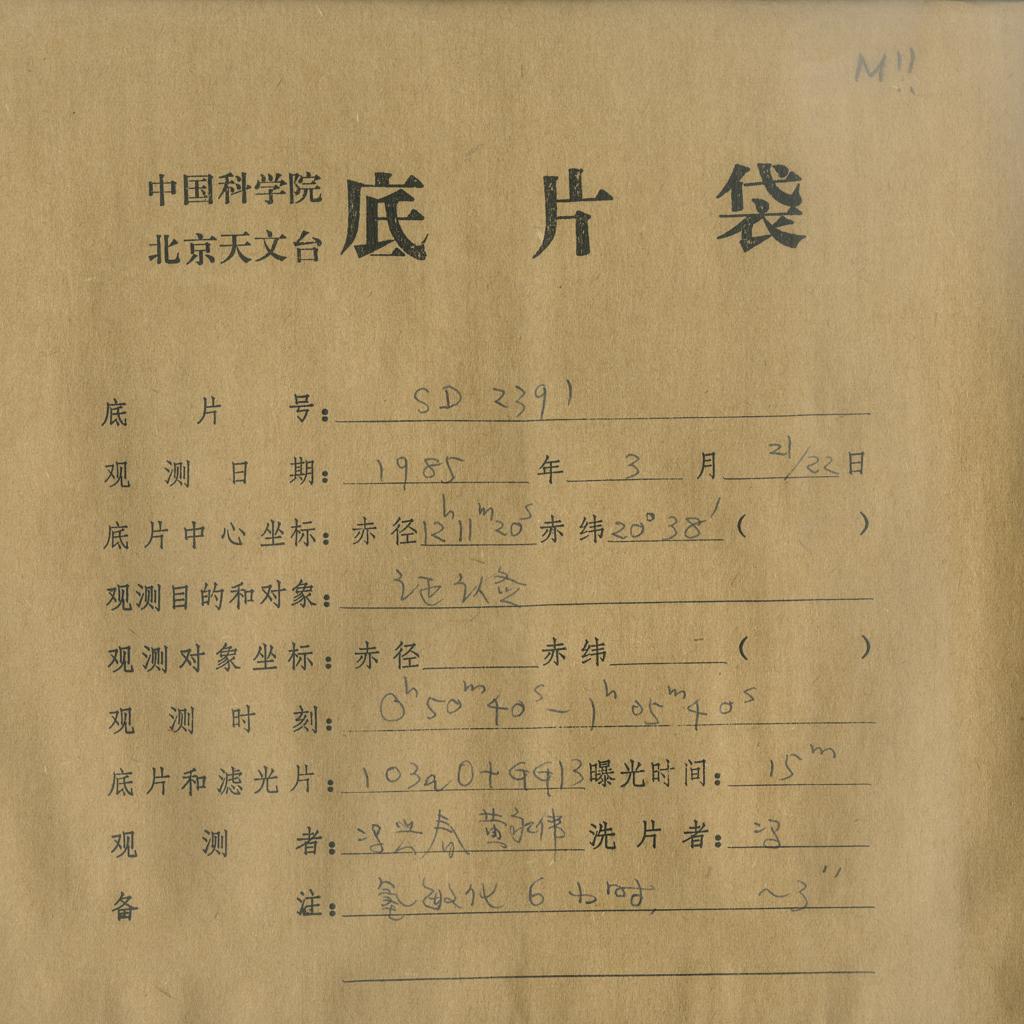 M!!
中国科学院
北京天文台
底片袋
底片号: SD 2391
观测日期: 1985年3月21/22日
底片中心坐标: 赤径12h11m20s赤纬20°38′( )
观测目的和对象: 证认
观测对象坐标: 赤径 赤纬 ( )
观测时刻: 0h50m40s-1h05m40s
底片和滤光片: 103aO+GG13曝光时间: 15m
观测者: 冯兴春 黄永伟 洗片者: 冯
备注: 氢敏化 6 小时, ~3″